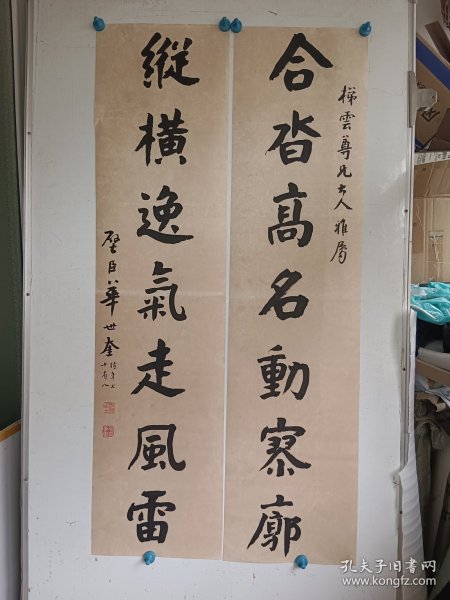 梯雲尊兄大人雅屬
合沓高名動寥廓
縱橫逸氣走風雷
璧臣華世奎
時年七
十有八
孔夫子旧书网
www.kongfz.com